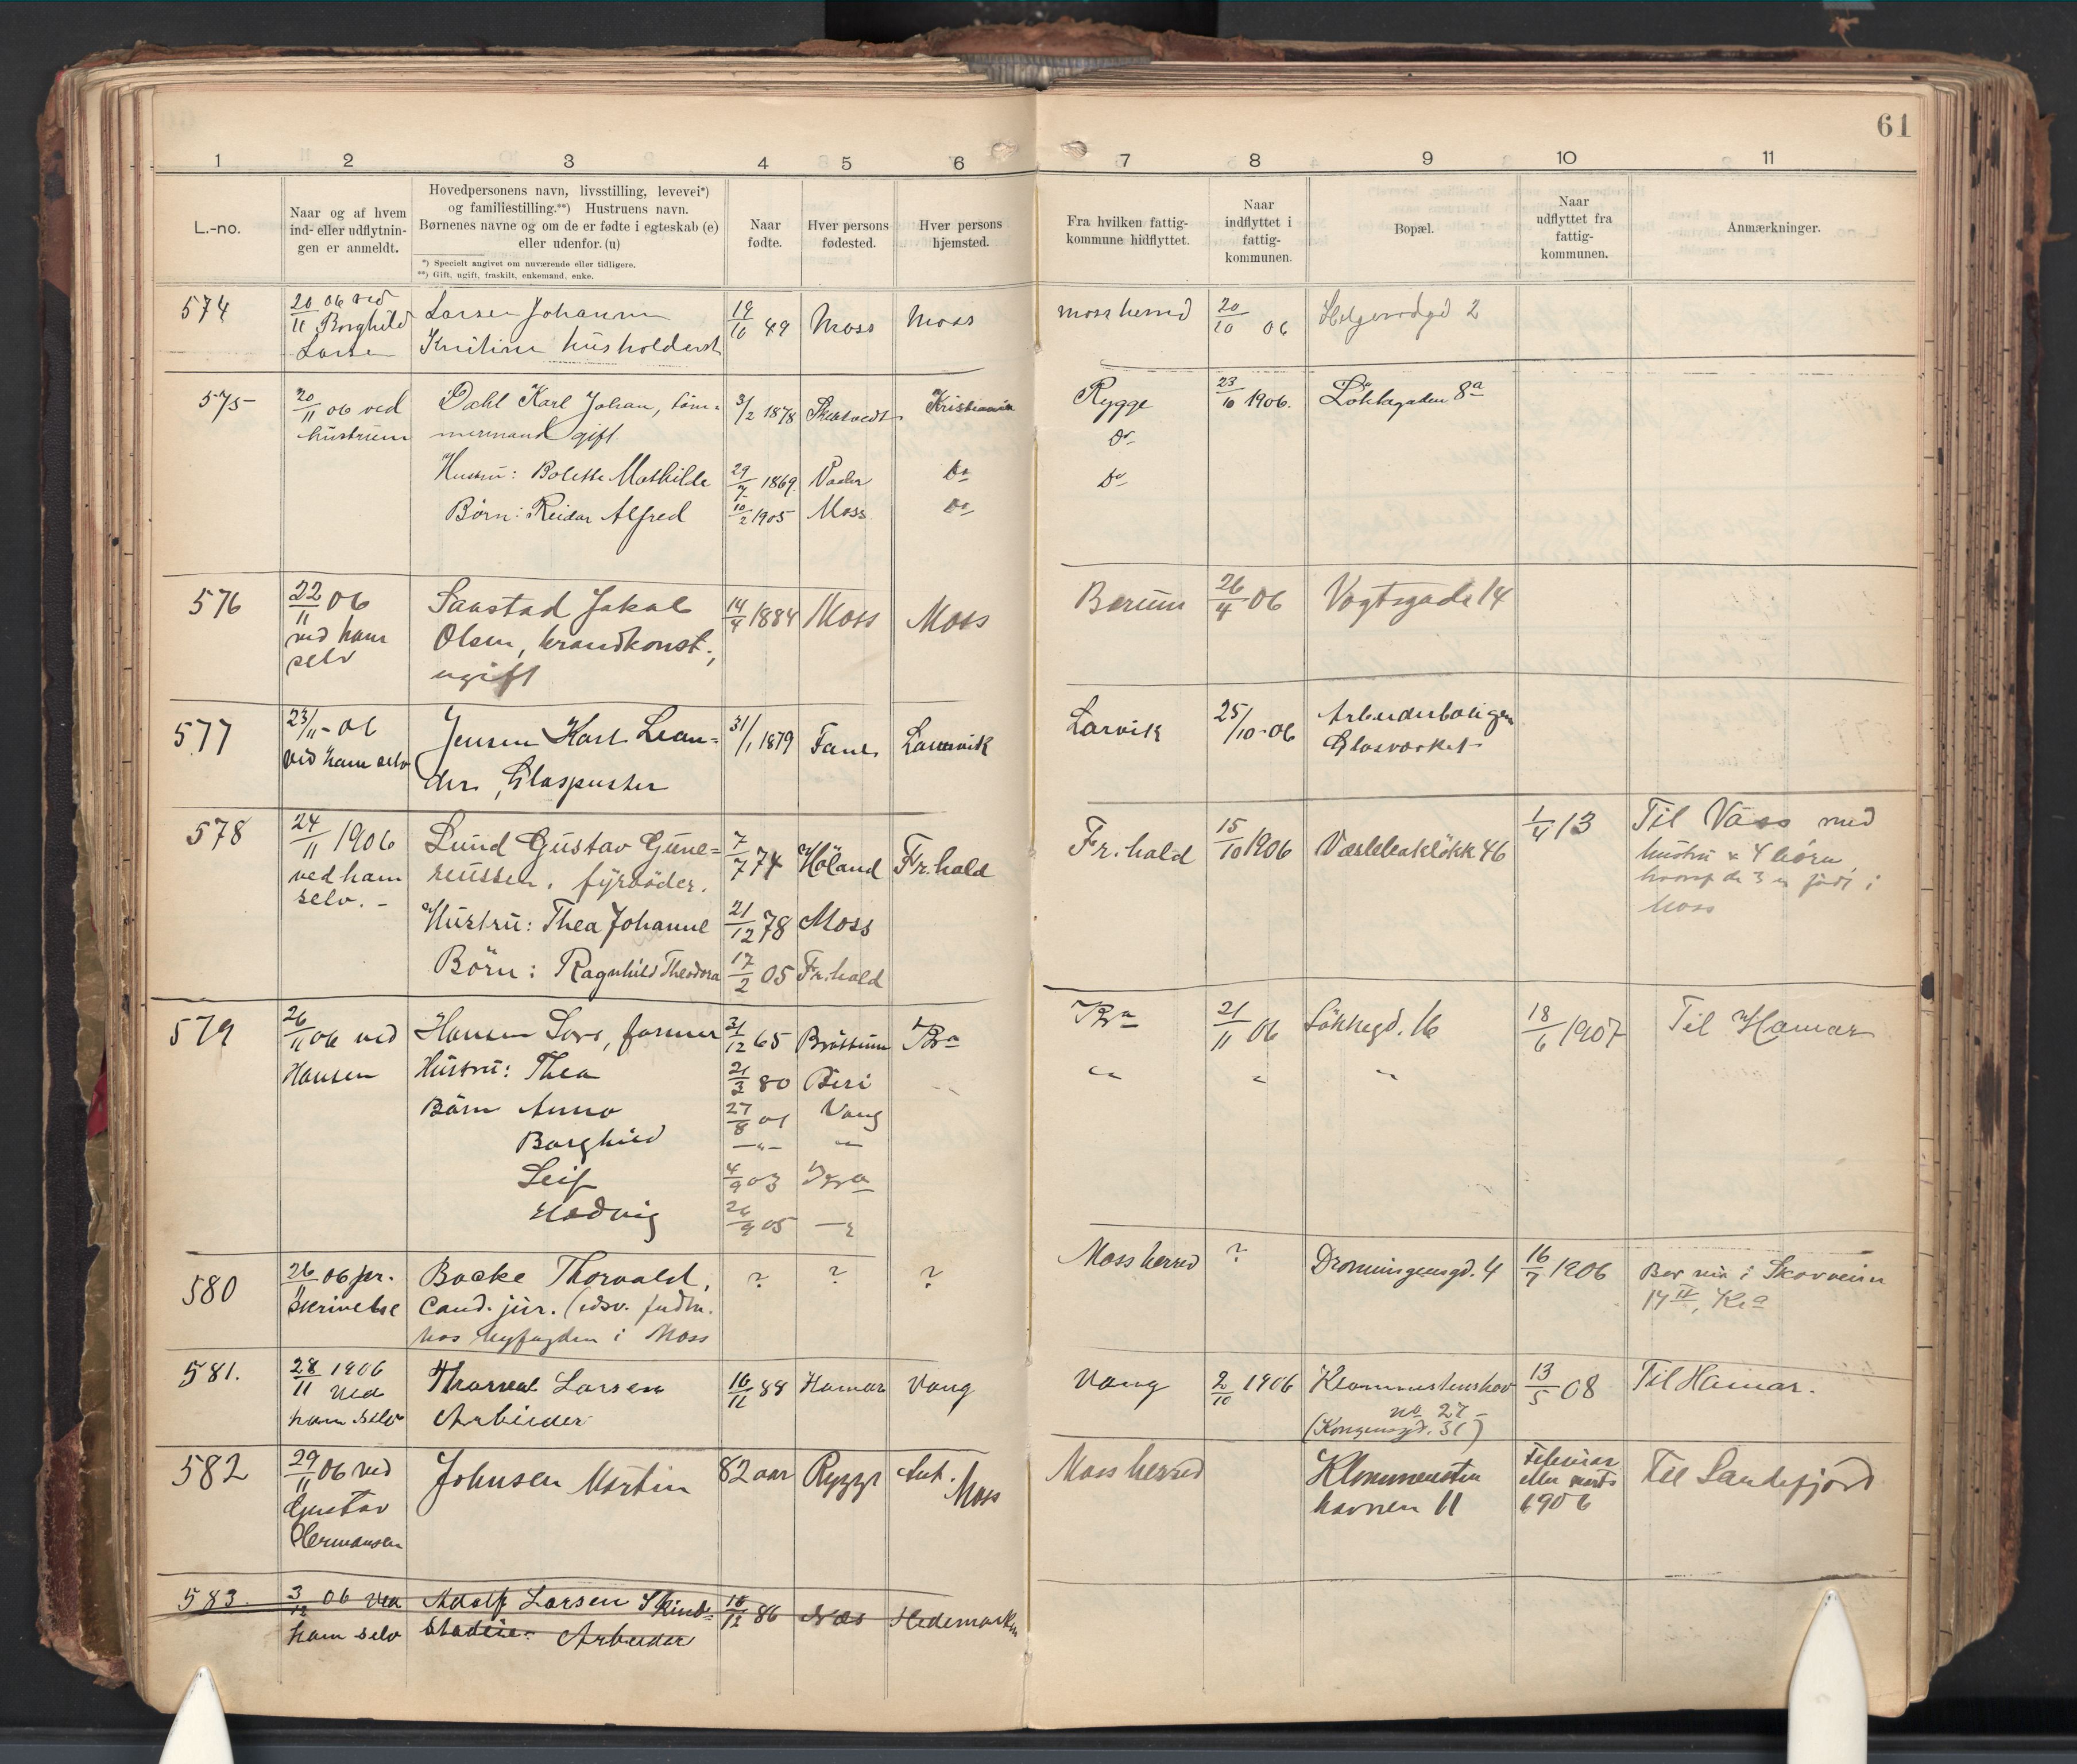 61
1 2 3 4 5 6 7 8 9 10 11
L.-no.
Naar og af hvem
ind- eller udflytnin-
gen er anmeldt.
Hovedpersonens navn, livsstilling, levevei*)
og familiestilling.**) Hustruens navn.
Børnenes navne og om de er fødte i egteskab (e)
eller udenfor. (u)
*) Specielt angivet om nuværende eller tidligere.
**) Gift, ugift, fraskilt, enkemand, enke.
Naar
fødte.
Hver persons
fødested.
Hver persons
hjemsted.
Fra hvilken fattig-
kommune hidflyttet.
Naar
indflyttet i
fattig-
kommunen.
Bopæl.
Naar
udflyttet fra
fattig-
kommunen.
Anmærkninger.
574 20/11 06 ved Larsen Johanne 49 Moss Moss Moss herred 20/10 06 2
Borghild
Larsen
575 20/11 06 ved Dahl Karl Johan, töm- 3/2 1878 Kristiania Rygge 23/10 1906. Lökkegaden 8a
hustruen mermand gift Do
Hustru: Bolette Mathilde 29/7 1869 Vaaler Do Do
Börn: Reidar Alfred 10/2 1905 Moss Do
576 22/11 06 Saastad Jakob 14/4 1884 Moss Moss Berum 26/4 06 Vogtsgade 14
ved ham Olsen, brandkonst.,
selv ugift
577 23/11-06 Jensen Karl Lean- 31/1 1879 Laurvik Larvik 25/10-06 Arbeiderboligen
ved ham selv der, Glaspuster Glasværket
578 24/11 1906 Lund Gustav 7/7 74 Höland Fr.hald Fr.hald 15/10 1906 46 1/4 13 Til med
ved ham fyrböder. hustru & 4 börn
selv. - hvoraf de 3 er født i
Hustru: Thea Johanne 21/12 78 Moss Moss
Börn: Ragnhild Theodora 17/2 05 Fr.hald
579 26/11 06 ved Hansen Lars, former 31/12 65 Bröttum Kra Kra 21/11 06 Løkkegd. 16 18/6 1907 Til Hamar
Hansen Hustru: Thea 21/3 80 Biri " " "
Börn Anna 27/8 01 Vang
Borghild -"- "
Leif 4/9 03 Kra
Hedvig 26/9 05 -"
580 26/11 06 pr. Backe Thorvald, ? ? ? Moss herred ? Dronningensgd. 4 16/7 1906 Bor nu i Skovveien
skrivelse Cand. jur. (edsv. fuldm. 17 II, Kra
hos byfogden i Moss
581. 28/11 1906 Larsen 88 Hamar Vang Vang 2/10 1906 13/5 08 Til Hamar.
ved Arbeider no 27 -
ham selv (Kongensgd. 31)
582 29/11 06 ved Johnsen Martin 82 aar Rygge Ant. Moss herred Klommesten Februar Til Sandefjord
Gustav Moss havnen 11 eller marts
Hermansen 1906
583. 3/12 06 ved Adolf Larsen Skind- 86 Næs Hedemarken
ham selv Arbeider